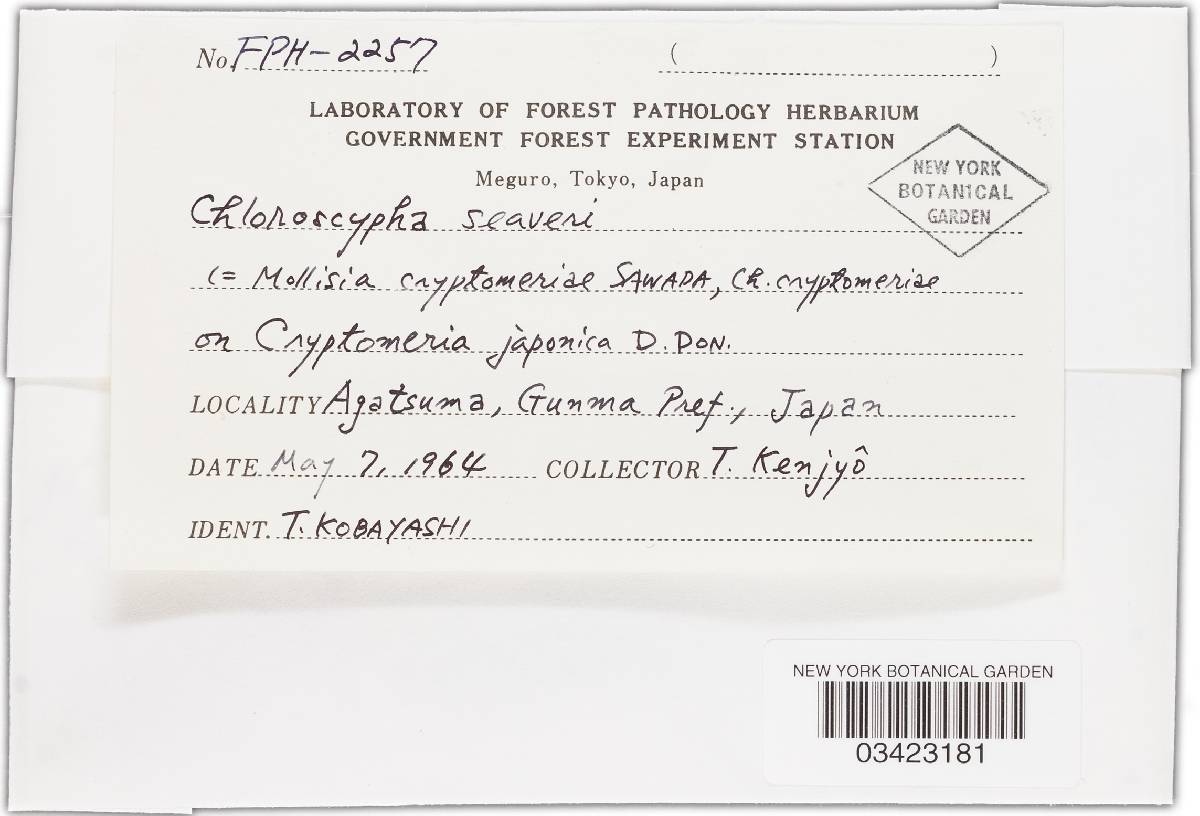 No. FPH-2257 ( )
LABORATORY OF FOREST PATHOLOGY HERBARIUM
GOVERNMENT FOREST EXPERIMENT STATION
Meguro, Tokyo, Japan
NEW YORK
BOTANICAL
GARDEN
Chloroscypha seaveri
(= Mollisia cryptomeriae SAWADA, Ch. cryptomeriae
on Cryptomeria japonica D. DON.
LOCALITY Agatsuma, Gunma Pref., Japan
DATE May 7, 1964 COLLECTOR T. Kenjyô
IDENT. T. KOBAYASHI
NEW YORK BOTANICAL GARDEN
03423181